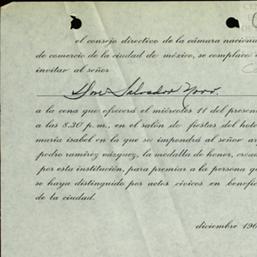 el consejo directivo de la cámara nacional
de comercio de la ciudad de méxico, se complace
invitar al señor
Don Salvador Novo.
a la cena que ofrecerá el miércoles 11 del presen
a las 8.30 p. m., en el salón de fiestas del hote
maría isabel en la que se impondrá al señor ar
pedro ramírez vázquez, la medalla de honor, cread
por esta institución, para premiar a la persona q
se haya distinguido por actos cívicos en benefic
de la ciudad.
diciembre 196